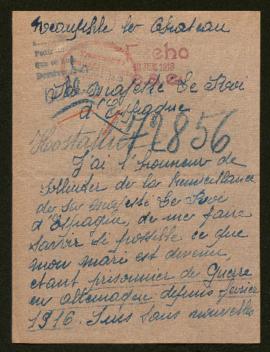 le Chateau
Sa Majesté Le Roi
d'Espagne
72856
J'ai l'honneur de
solliciter de la bienveillance
de Sa Majesté Le Roi
d'Espagne, de me faire
savoir si possible ce que
mon mari est devenu,
étant prisonnier de Guerre
en allemagne depuis février
1916. Suis sans nouvelles